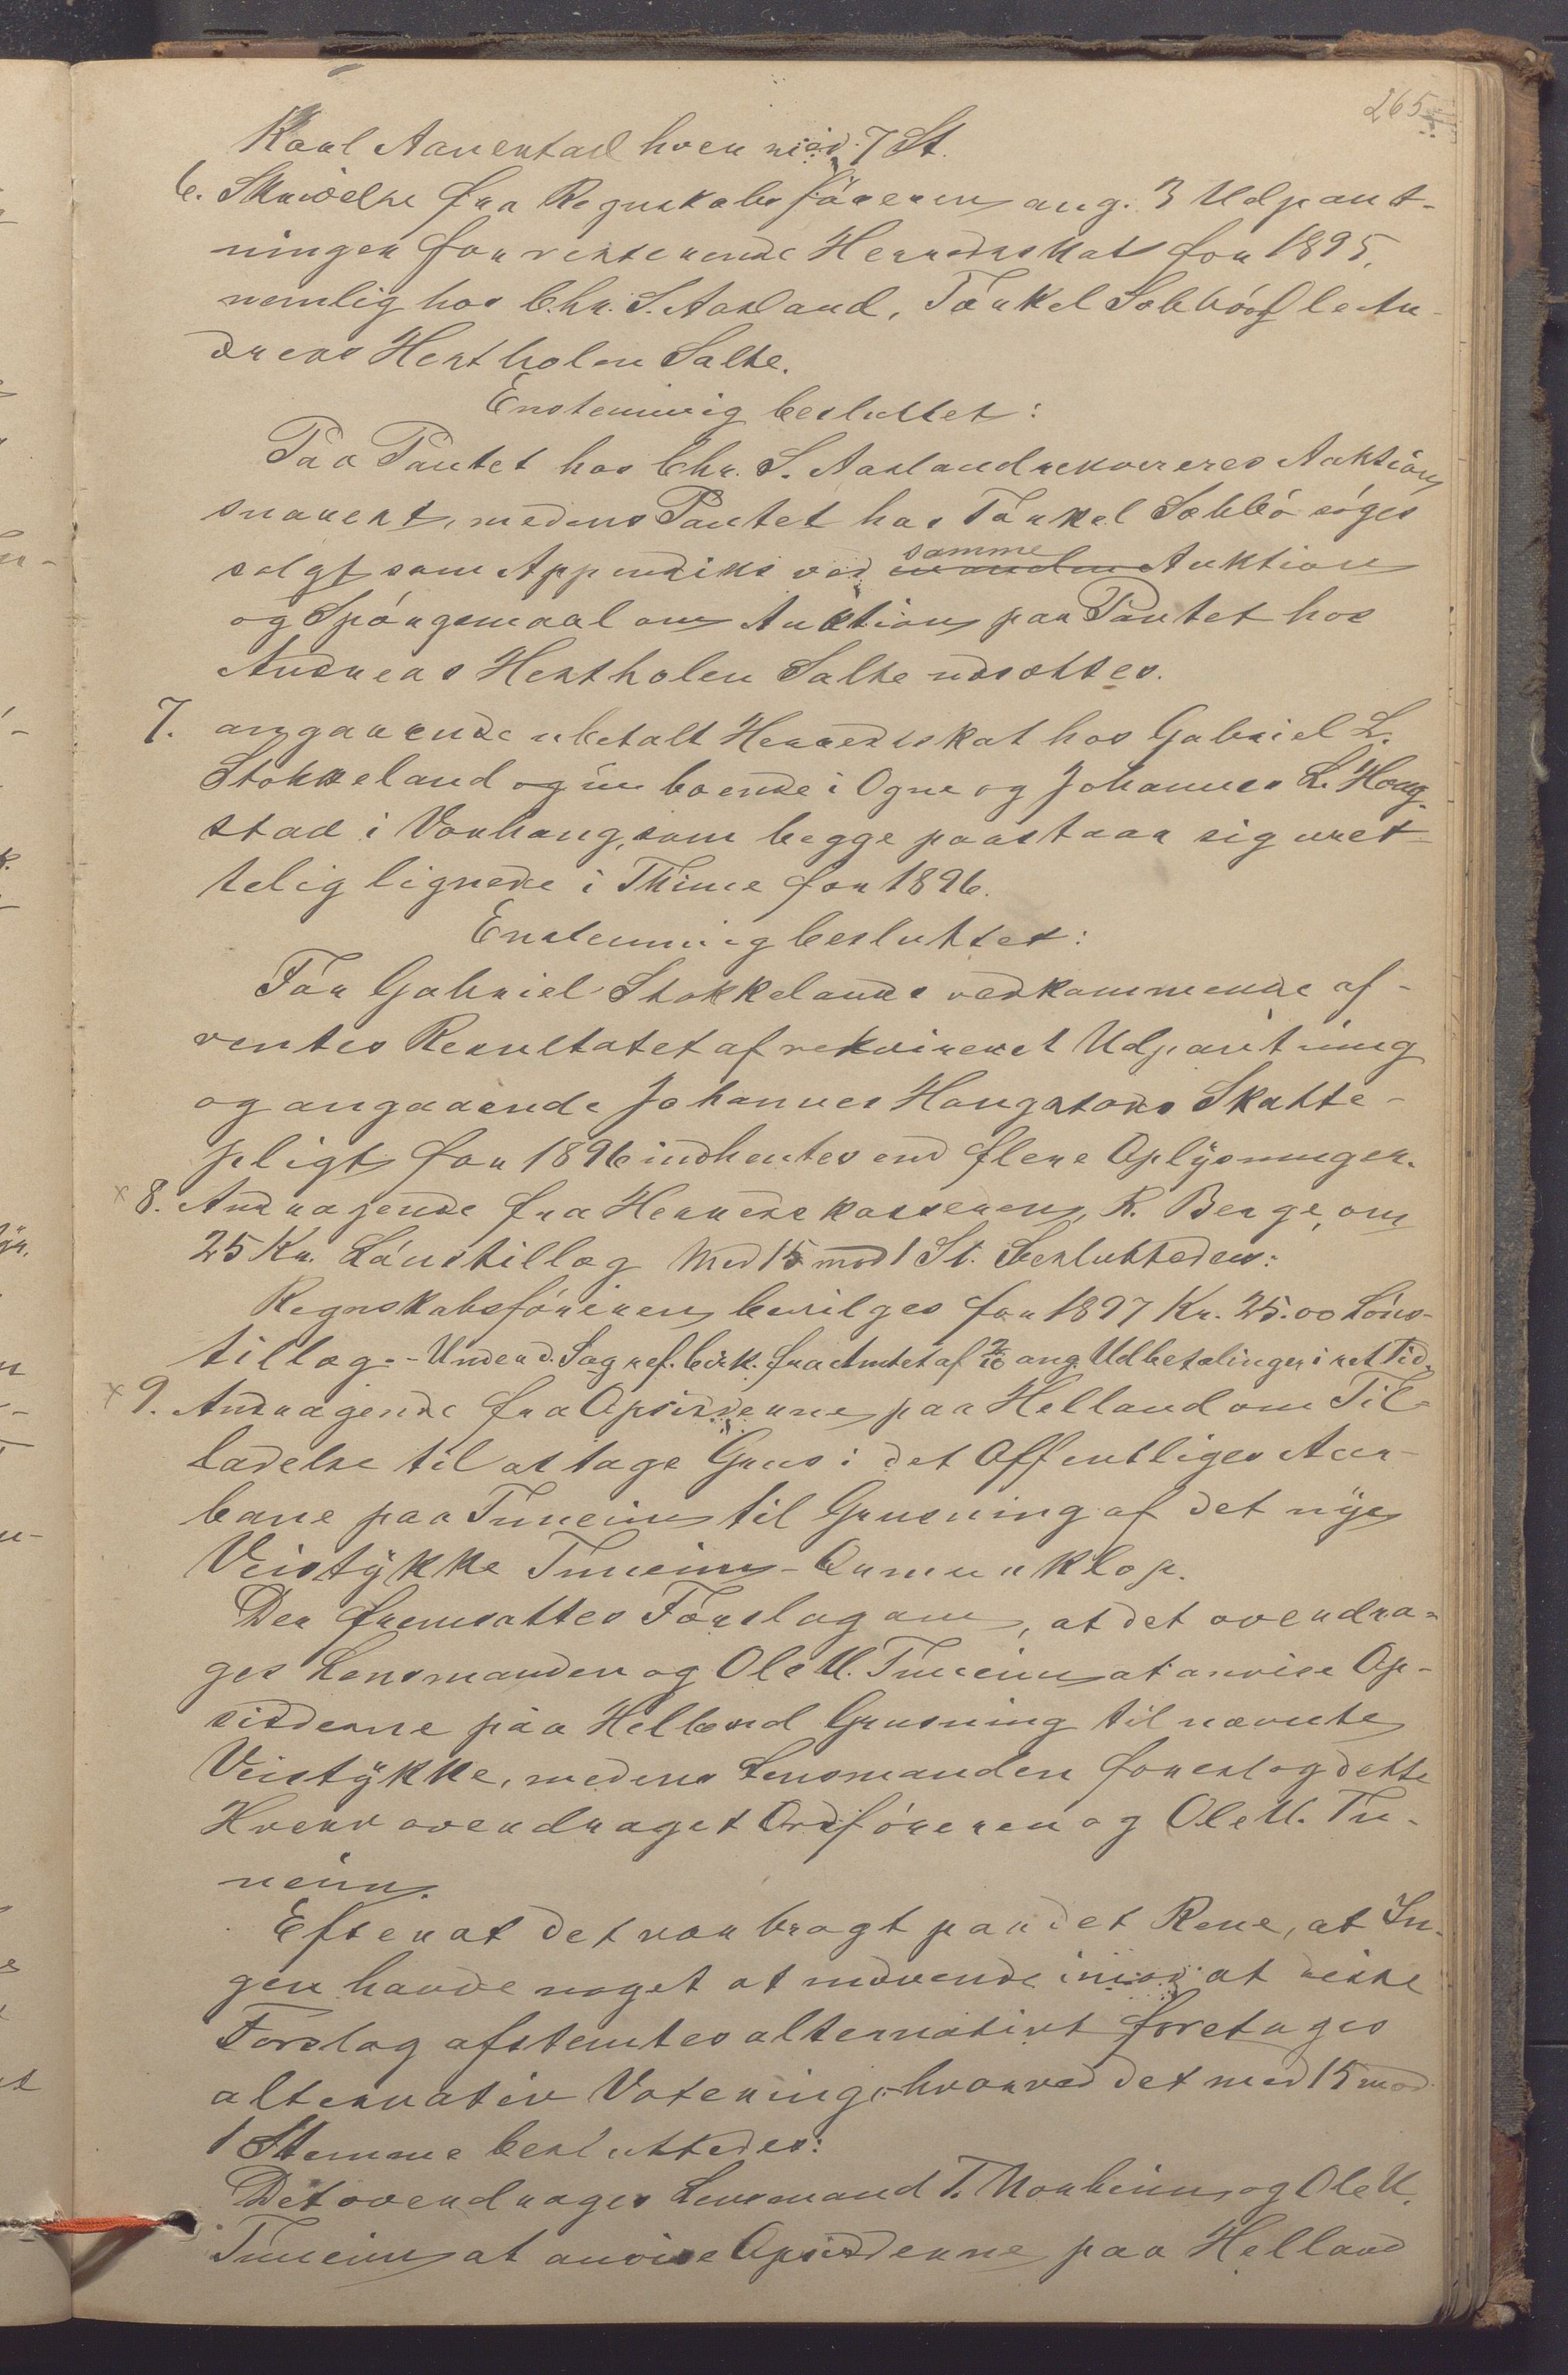 265
Karl Aarrestad hver med 7 St.
6. Skrivelse fra Regnskabsføreren ang. 3 Udpant-
ninger for resterende Herredsskat for 1895,
nemlig hos Chr. S. Aasland, Tørkel Sæbbø og An-
dreas Hestholen Salte.
Enstemmig besluttet:
Paa Pantet hos Chr. S. Aasland rekvireres Auktion
snarest, medens Pantet hos Tørkel Sæbbø søges
solgt som Appendiks ved samme Auktion
og Spørgsmaal om Auktion paa Pantet hos
Andreas Hestholen Salte udsættes.
7. angaaende ubetalt Herredsskat hos Gabriel L.
Stokkeland og nu boende i Ogne og Johannes L. Haug-
stad i Varhaug, som begge paastaar sig uret-
telig lignede i Thime for 1896.
Enstemmig besluttet:
For Gabriel Stokkelands vedkommende af-
ventes Resultatet af rekvireret Udpantning
og angaaende Johannes Haugstads Skatte-
pligt for 1896 indhentes end flere Oplysninger.
x 8. Andragende fra Herredskassereren, R. Berge, om
25 Kr. Lønstillæg Med 15 mod 1 St. besluttedes:
Regnskabsføreren bevilges for 1897 Kr. 25.00 Løns-
tillæg. - Under d. Sag ref. Cirk. fra Amtet af 2/10 ang. Udbetalinger i ret Tid.
x 9. Andragende fra Opsidderne paa Helland om Til-
ladelse til at tage Grus i det Offentliges Aur-
bane paa Tuneim til Grusning af det nye
Veistykke Tuneim - Ormeraklop.
Der fremsattes Forslag om, at det overdra-
ges Lensmanden og Ole U. Tuneim at anvise Op-
sidderne paa Helland Grusning til nævnte
Veistykke, medens Lensmanden foreslog dette
Hverv overdraget Ordføreren og Ole U. Tu-
neim.
Efterat det var bragt paa det Rene, at In-
gen havde noget at indvende imod at disse
Forslag afstemtes alternativt foretages
alternativ Votering, hvorved det med 15 mod
1 Stemme besluttedes:
Det overdrages Lensmand T. Norheim og Ole U.
Tuneim at anvise Opsidderne paa Helland